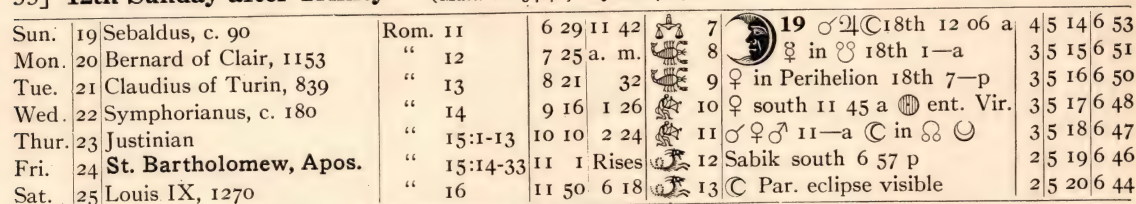 Sun. 19 Sebaldus, c. 90 Rom. 11 6 29 11 42 7 19 ☌♃☾18th 12 06 a 4 5 14 6 53
Mon. 20 Bernard of Clair, 1153 “ 12 7 25 a. m. 8 ☿ in ☋ 18th 1—a 3 5 15 6 51
Tue. 21 Claudius of Turin, 839 “ 13 8 21 32 9 ♀ in Perihelion 18th 7—p 3 5 16 6 50
Wed. 22 Symphorianus, c. 180 “ 14 9 16 1 26 10 ♀ south 11 45 a ent. Vir. 3 5 17 6 48
Thur. 23 Justinian “ 15:1-13 10 10 2 24 11 ☌♀♂ 11—a ☾ in ☊ 3 5 18 6 47
Fri. 24 St. Bartholomew, Apos. “ 15:14-33 11 1 Rises 12 Sabik south 6 57 p 2 5 19 6 46
Sat. 25 Louis IX, 1270 “ 16 11 50 6 18 13 ☾ Par. eclipse visible 2 5 20 6 44